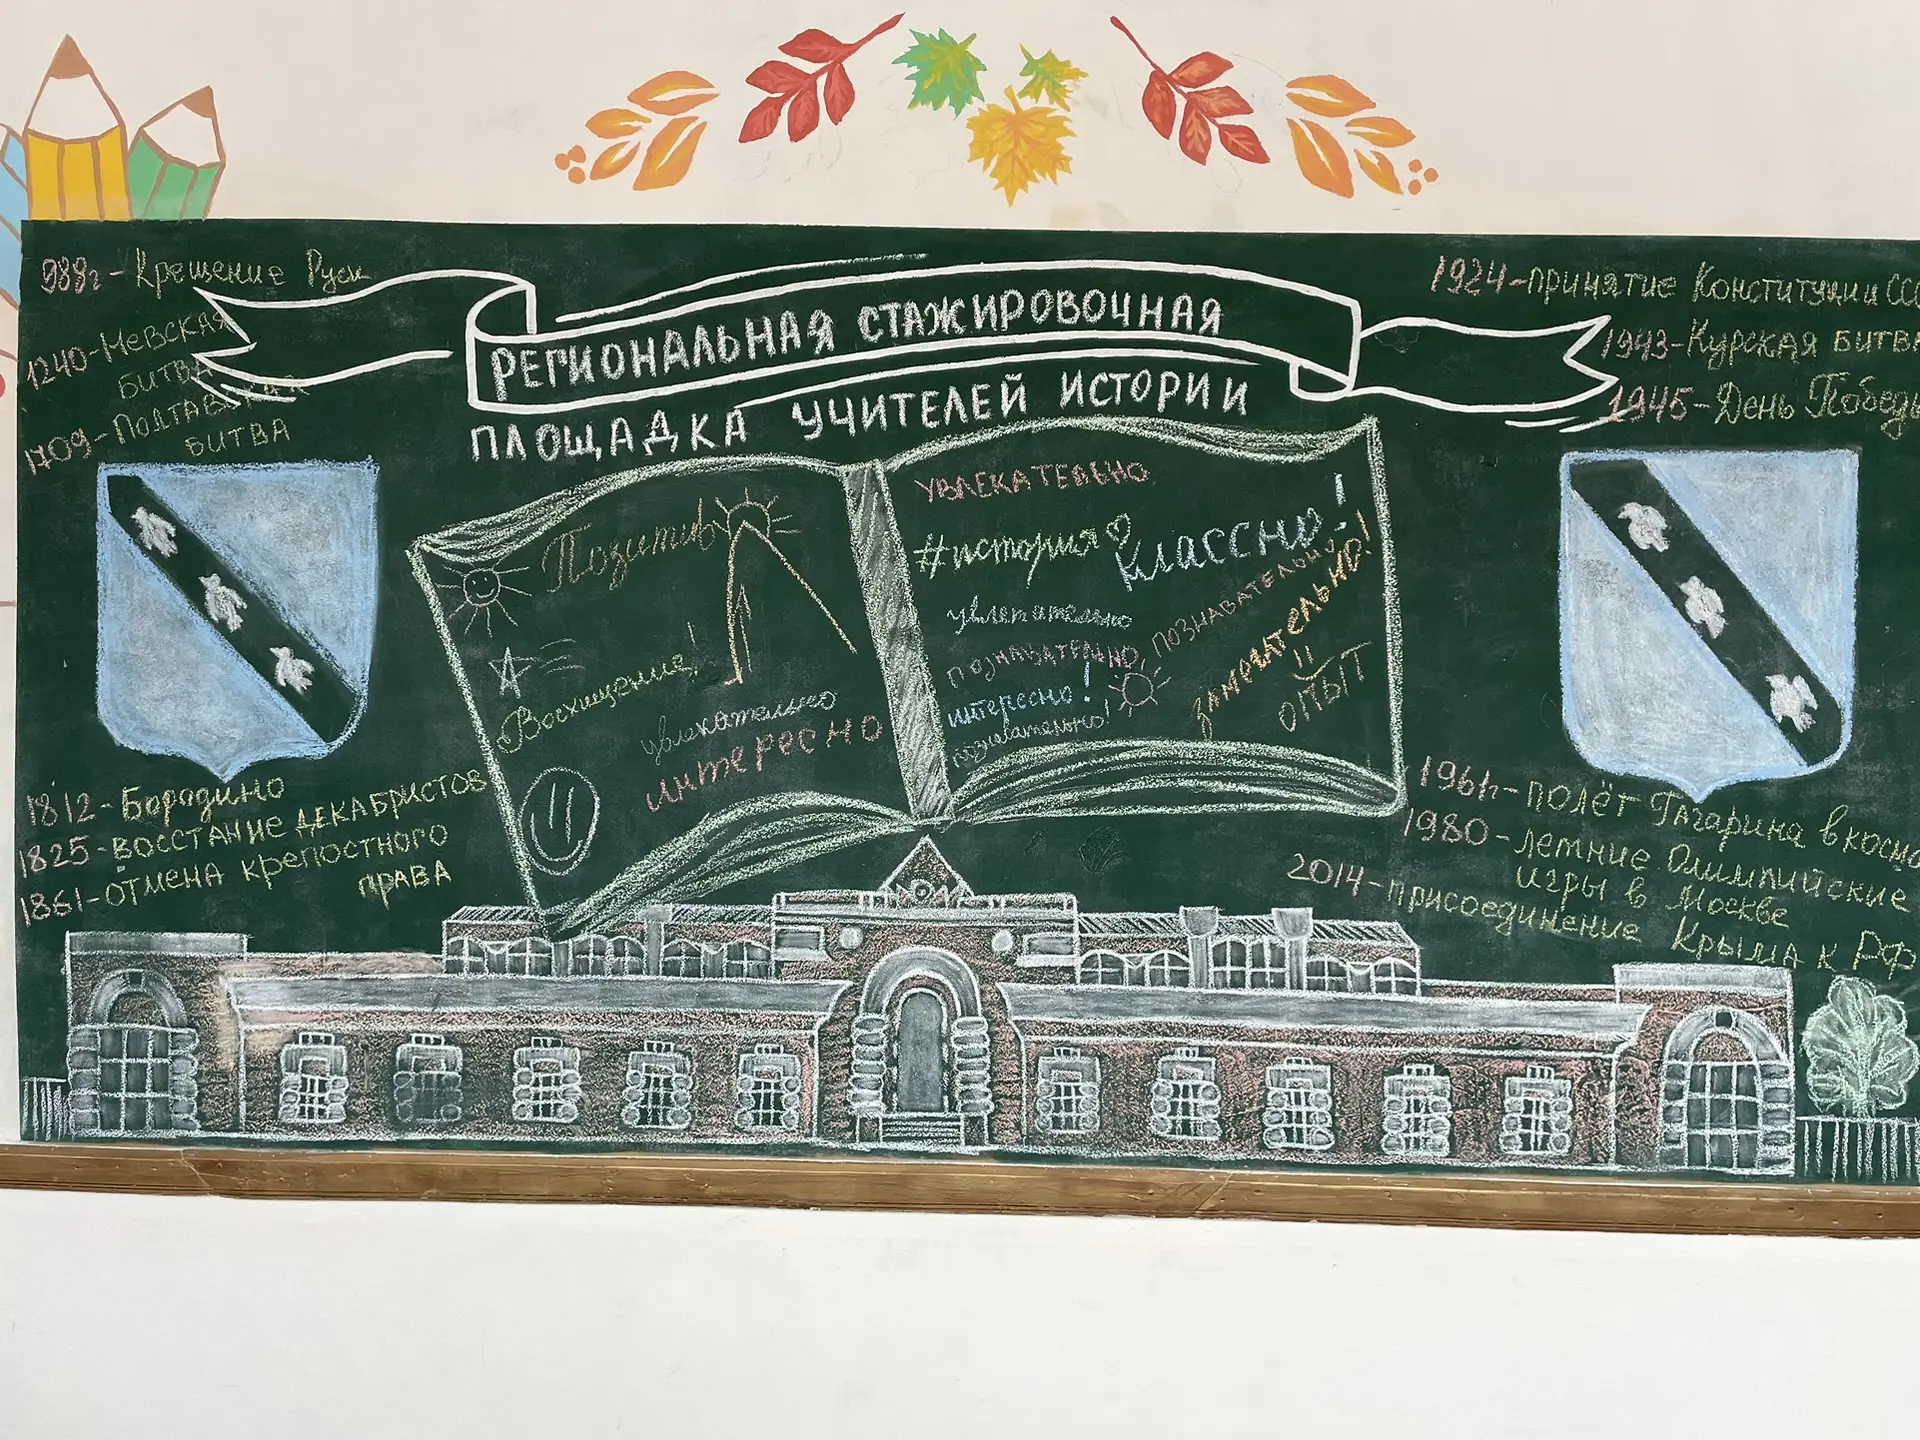 988г - Крещение Руси
1240 - Невская
битва
1709 - Полтавская
битва
РЕГИОНАЛЬНАЯ СТАЖИРОВОЧНАЯ
ПЛОЩАДКА УЧИТЕЛЕЙ ИСТОРИИ
1924 - принятие Конституции ССС
1943 - Курская битва
1945 - День Победы
Позитив
Восхищение!
увлекательно
интересно
УВЛЕКАТЕЛЬНО
#история
Классно!
увлекательно
познавательно
познавательно,
замечательно!
интересно!
познавательно!
опыт
1812 - Бородино
1825 - восстание декабристов
1861 - отмена крепостного
права
1961г - полёт Гагарина в космо
1980 - летние Олимпийские
игры в Москве
2014 - присоединение Крыма к РФ